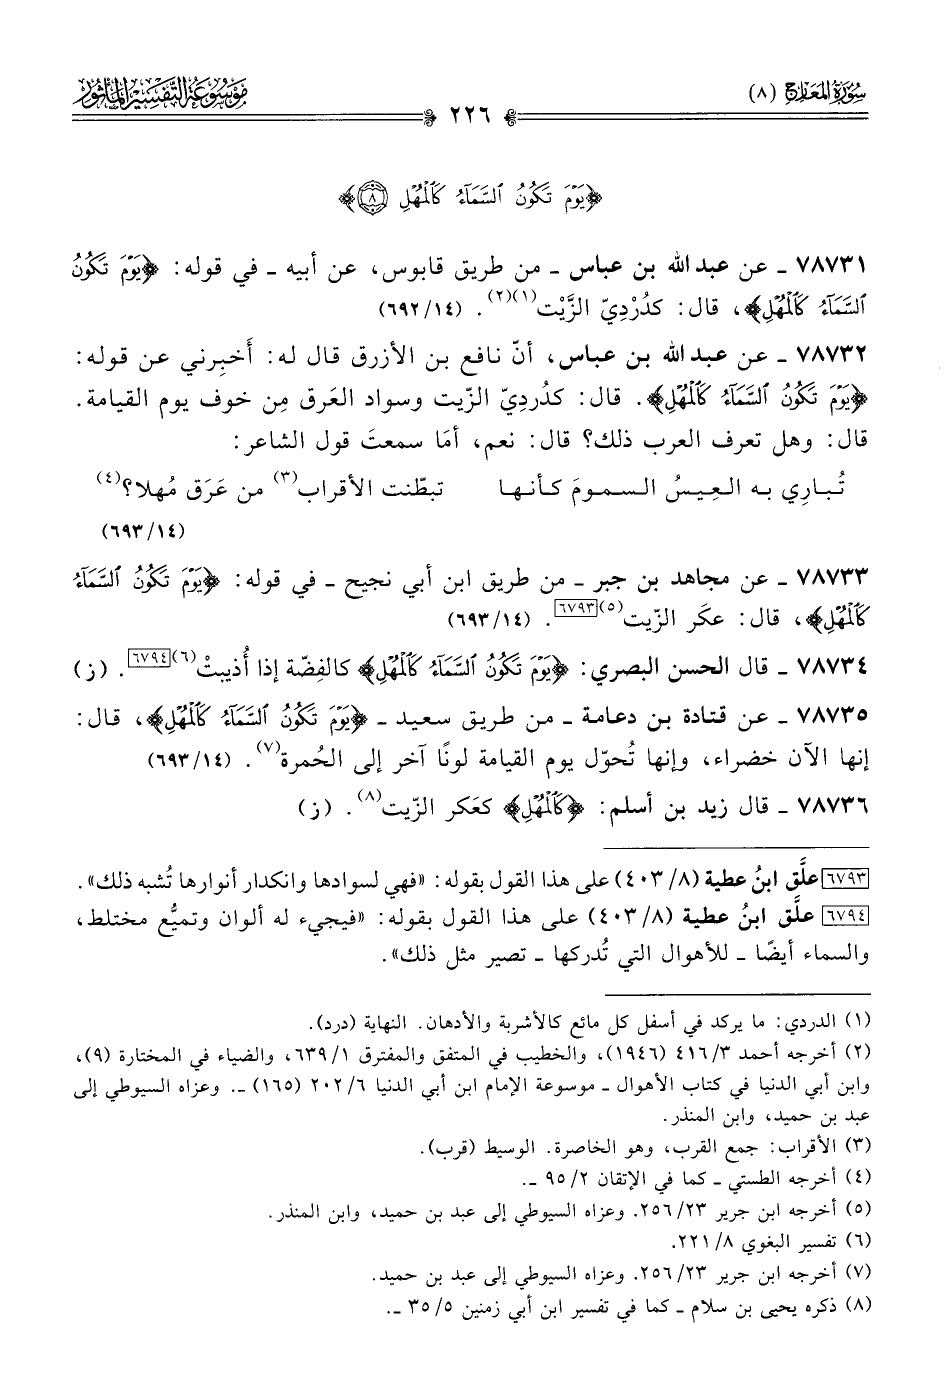 سورة المعارج (٨)
موسوعة التفسير المأثور
٢٢٦
﴿يَوْمَ تَكُونُ ٱلسَّمَآءُ كَٱلْمُهْلِ ٨﴾
٧٨٧٣١ ـ عن عبد الله بن عباس ـ من طريق قابوس، عن أبيه ـ في قوله: ﴿يَوْمَ تَكُونُ
ٱلسَّمَآءُ كَٱلْمُهْلِ﴾، قال: كدُرْدِيّ الزَّيْت(١)(٢). (٦٩٢/١٤)
٧٨٧٣٢ ـ عن عبد الله بن عباس، أنّ نافع بن الأزرق قال له: أَخبِرني عن قوله:
﴿يَوْمَ تَكُونُ ٱلسَّمَآءُ كَٱلْمُهْلِ﴾. قال: كدُردِيّ الزّيت وسواد العَرق مِن خوف يوم القيامة.
قال: وهل تعرف العرب ذلك؟ قال: نعم، أمَا سمعتَ قول الشاعر:
تُبارِي به العِيسُ السمومَ كأنها تبطّنت الأقراب(٣) من عَرَق مُهلا؟(٤)
(٦٩٣/١٤)
٧٨٧٣٣ ـ عن مجاهد بن جبر ـ من طريق ابن أبي نجيح ـ في قوله: ﴿يَوْمَ تَكُونُ ٱلسَّمَآءُ
كَٱلْمُهْلِ﴾، قال: عكَر الزّيت(٥)[٦٧٩٣]. (٦٩٣/١٤)
٧٨٧٣٤ ـ قال الحسن البصري: ﴿يَوْمَ تَكُونُ ٱلسَّمَآءُ كَٱلْمُهْلِ﴾ كالفِضّة إذا أُذيبتْ(٦)[٦٧٩٤]. (ز)
٧٨٧٣٥ ـ عن قتادة بن دعامة ـ من طريق سعيد ـ ﴿يَوْمَ تَكُونُ ٱلسَّمَآءُ كَٱلْمُهْلِ﴾، قال:
إنها الآن خضراء، وإنها تُحوّل يوم القيامة لونًا آخر إلى الحُمرة(٧). (٦٩٣/١٤)
٧٨٧٣٦ ـ قال زيد بن أسلم: ﴿كَٱلْمُهْلِ﴾ كعَكر الزّيت(٨). (ز)
[٦٧٩٣] علَّق ابنُ عطية (٤٠٣/٨) على هذا القول بقوله: «فهي لسوادها وانكدار أنوارها تُشبه ذلك».
[٦٧٩٤] علَّق ابنُ عطية (٤٠٣/٨) على هذا القول بقوله: «فيجيء له ألوان وتميُّع مختلط،
والسماء أيضًا ـ للأهوال التي تُدركها ـ تصير مثل ذلك».
(١) الدردي: ما يركد في أسفل كل مائع كالأشربة والأدهان. النهاية (درد).
(٢) أخرجه أحمد ٤١٦/٣ (١٩٤٦)، والخطيب في المتفق والمفترق ٦٣٩/١، والضياء في المختارة (٩)،
وابن أبي الدنيا في كتاب الأهوال ـ موسوعة الإمام ابن أبي الدنيا ٢٠٢/٦ (١٦٥) ـ. وعزاه السيوطي إلى
عبد بن حميد، وابن المنذر.
(٣) الأقراب: جمع القرب، وهو الخاصرة. الوسيط (قرب).
(٤) أخرجه الطستي ـ كما في الإتقان ٩٥/٢ ـ.
(٥) أخرجه ابن جرير ٢٥٦/٢٣. وعزاه السيوطي إلى عبد بن حميد، وابن المنذر.
(٦) تفسير البغوي ٢٢١/٨.
(٧) أخرجه ابن جرير ٢٥٦/٢٣. وعزاه السيوطي إلى عبد بن حميد.
(٨) ذكره يحيى بن سلام ـ كما في تفسير ابن أبي زمنين ٣٥/٥ ـ.